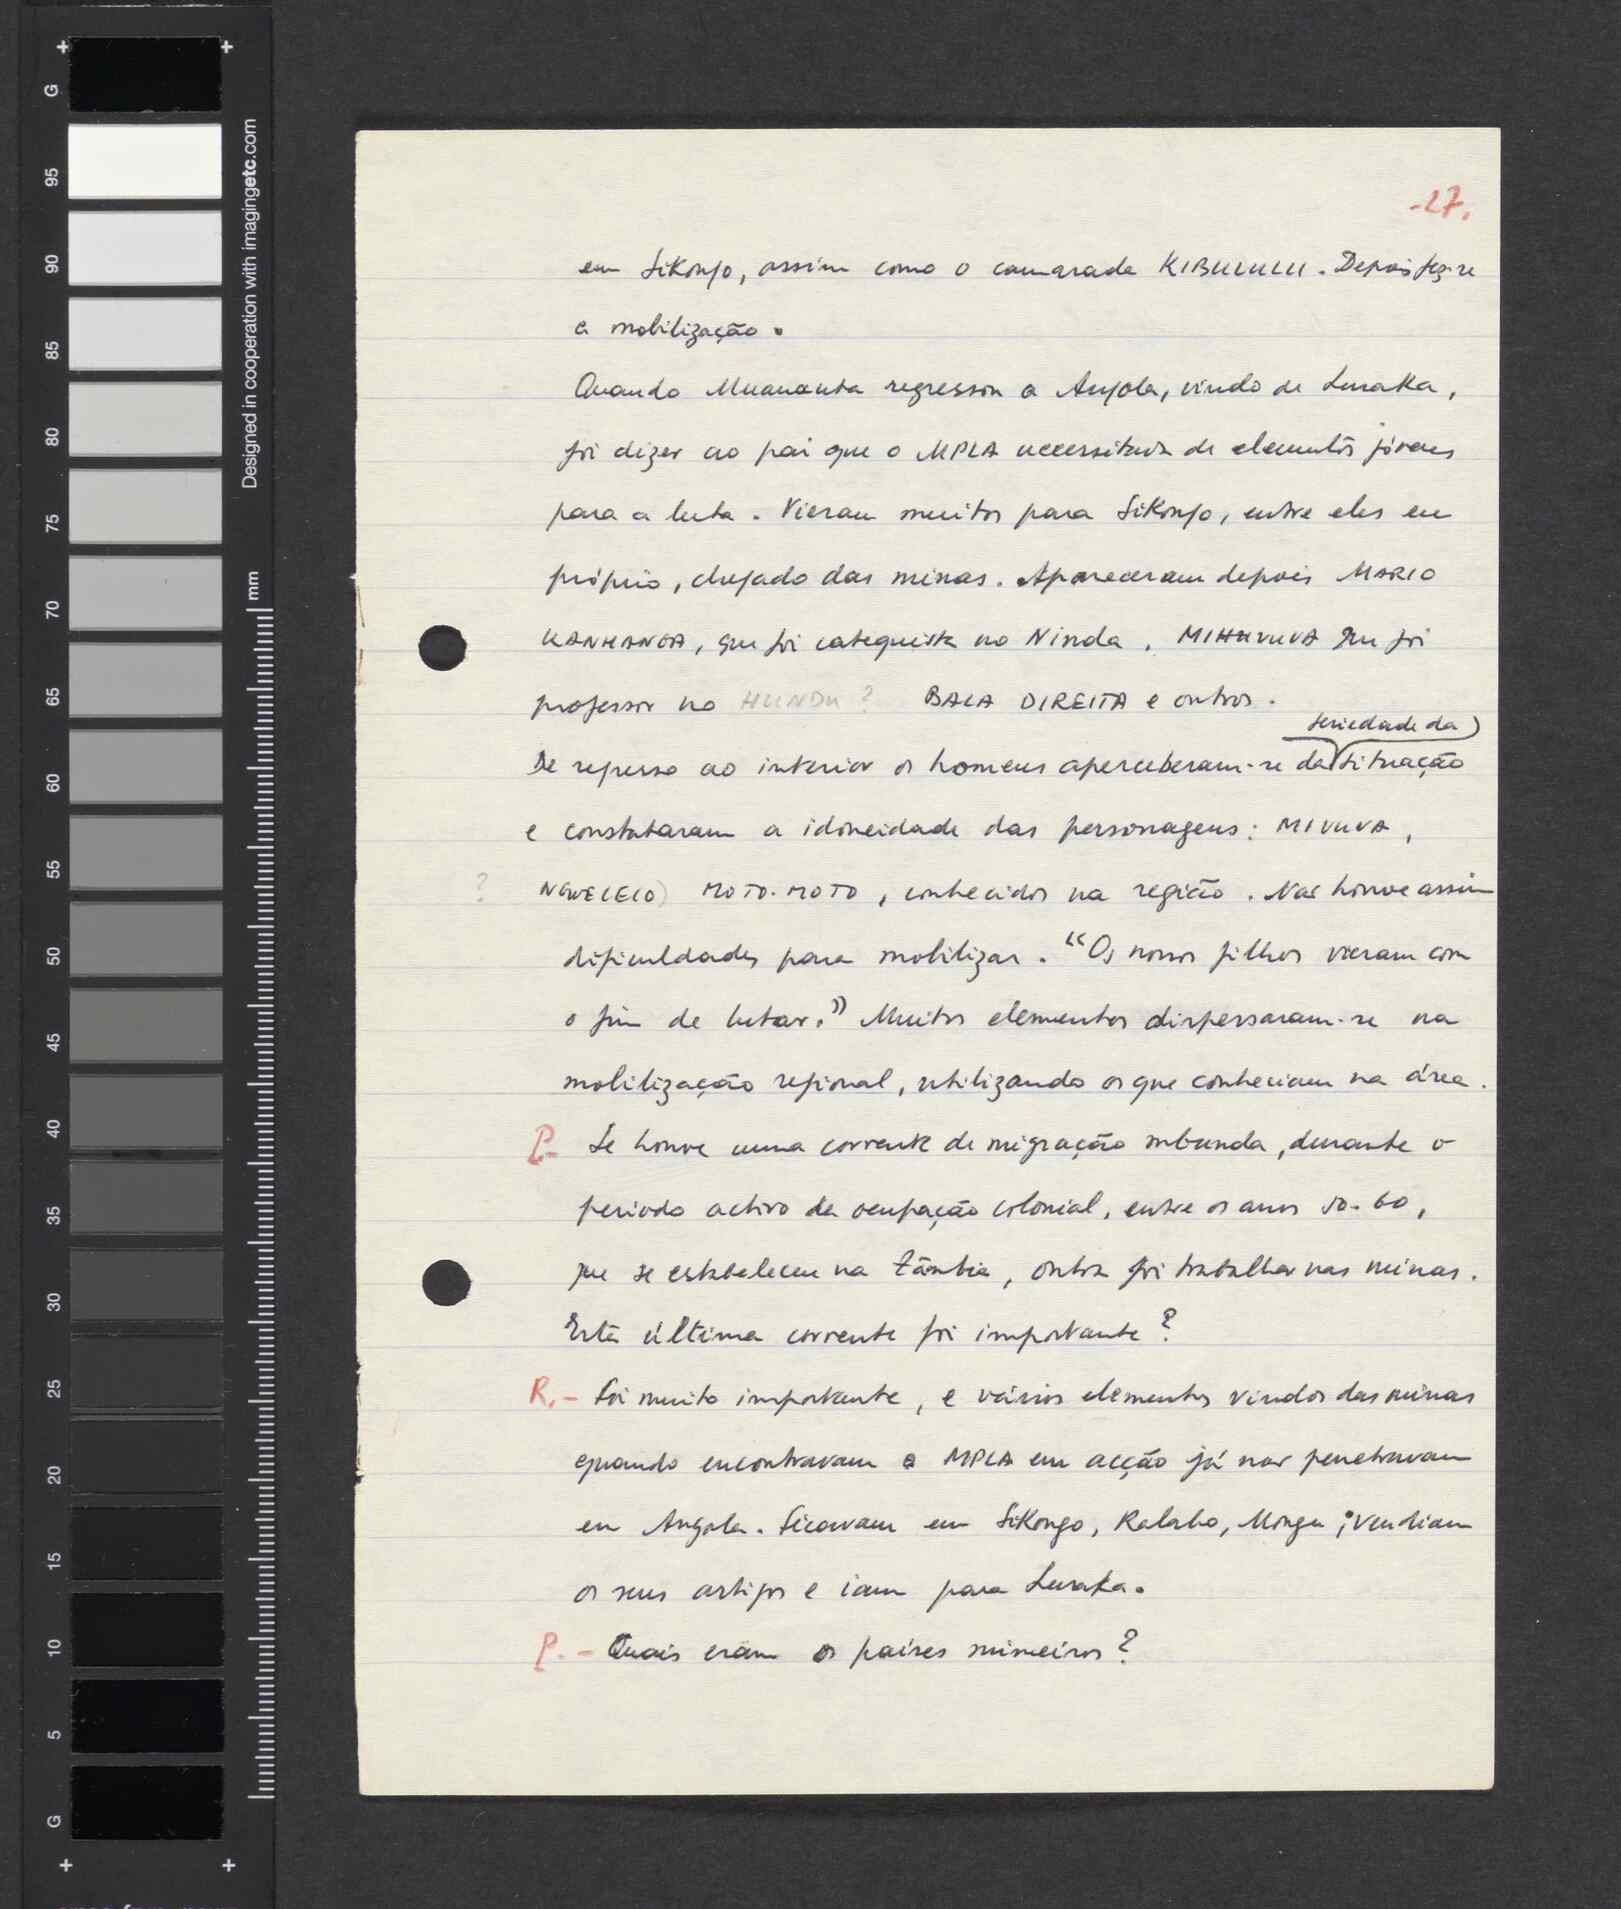 -27.
em Sikongo, assim como o camarada KIBULULU. Depois fez-se
a mobilização.
Quando Muananta regressou a Angola, vindo de Lusaka,
foi dizer ao pai que o MPLA necessitava de elementos jóvens
para a luta. Vieram muitos para Sikongo, entre eles eu
próprio, chegado das minas. Apareceram depois MARIO
KANHANGA, que foi catequista no Ninda, que foi
professor no HUNDU? BALA DIREITA e outros.
seriedade da
De regresso ao interior os homens aperceberam-se da situação
e constataram a idoneidade das personagens: MIVUVA,
? MOTO-MOTO, conhecidos na região. Não houve assim
dificuldades para mobilizar. "Os nossos filhos vieram com
o fim de lutar." Muitos elementos dispersaram-se na
mobilização regional, utilizando os que conheciam na área.
P.- Se houve uma corrente de migração mbunda, durante o
periodo activo da ocupação colonial, entre os anos 50-60,
que se estabeleceu na Zâmbia, outra foi trabalhar nas minas.
Esta última corrente foi importante?
R.- Foi muito importante, e vários elementos vindos das minas
quando encontravam o MPLA em acção já não penetravam
em Angola. Ficavam em Sikongo, Kalabo, Mongu; vendiam
os seus artigos e iam para Lusaka.
P.- Quais eram os países mineiros?
Designed in cooperation with imagingetc.com
mm
G
95
90
85
80
75
70
65
60
55
50
45
40
35
30
25
20
15
10
5
G